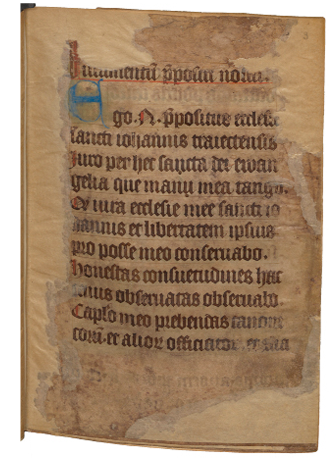 Iuramentū p̄positi noui.
Ego .N. p̄positus ecclesie
sancti iohannis traiectensis
Iuro per hec sancta dei ewan
gelia que manu mea tango.
Q iura ecclesie mee sancti io
hannis et libertatem ipsius
pro posse meo conseruabo.
honestas consuetudines hac
tenus obseruatas obseruabo.
Caplo meo prebendas canoni
corū. et alior officiator.